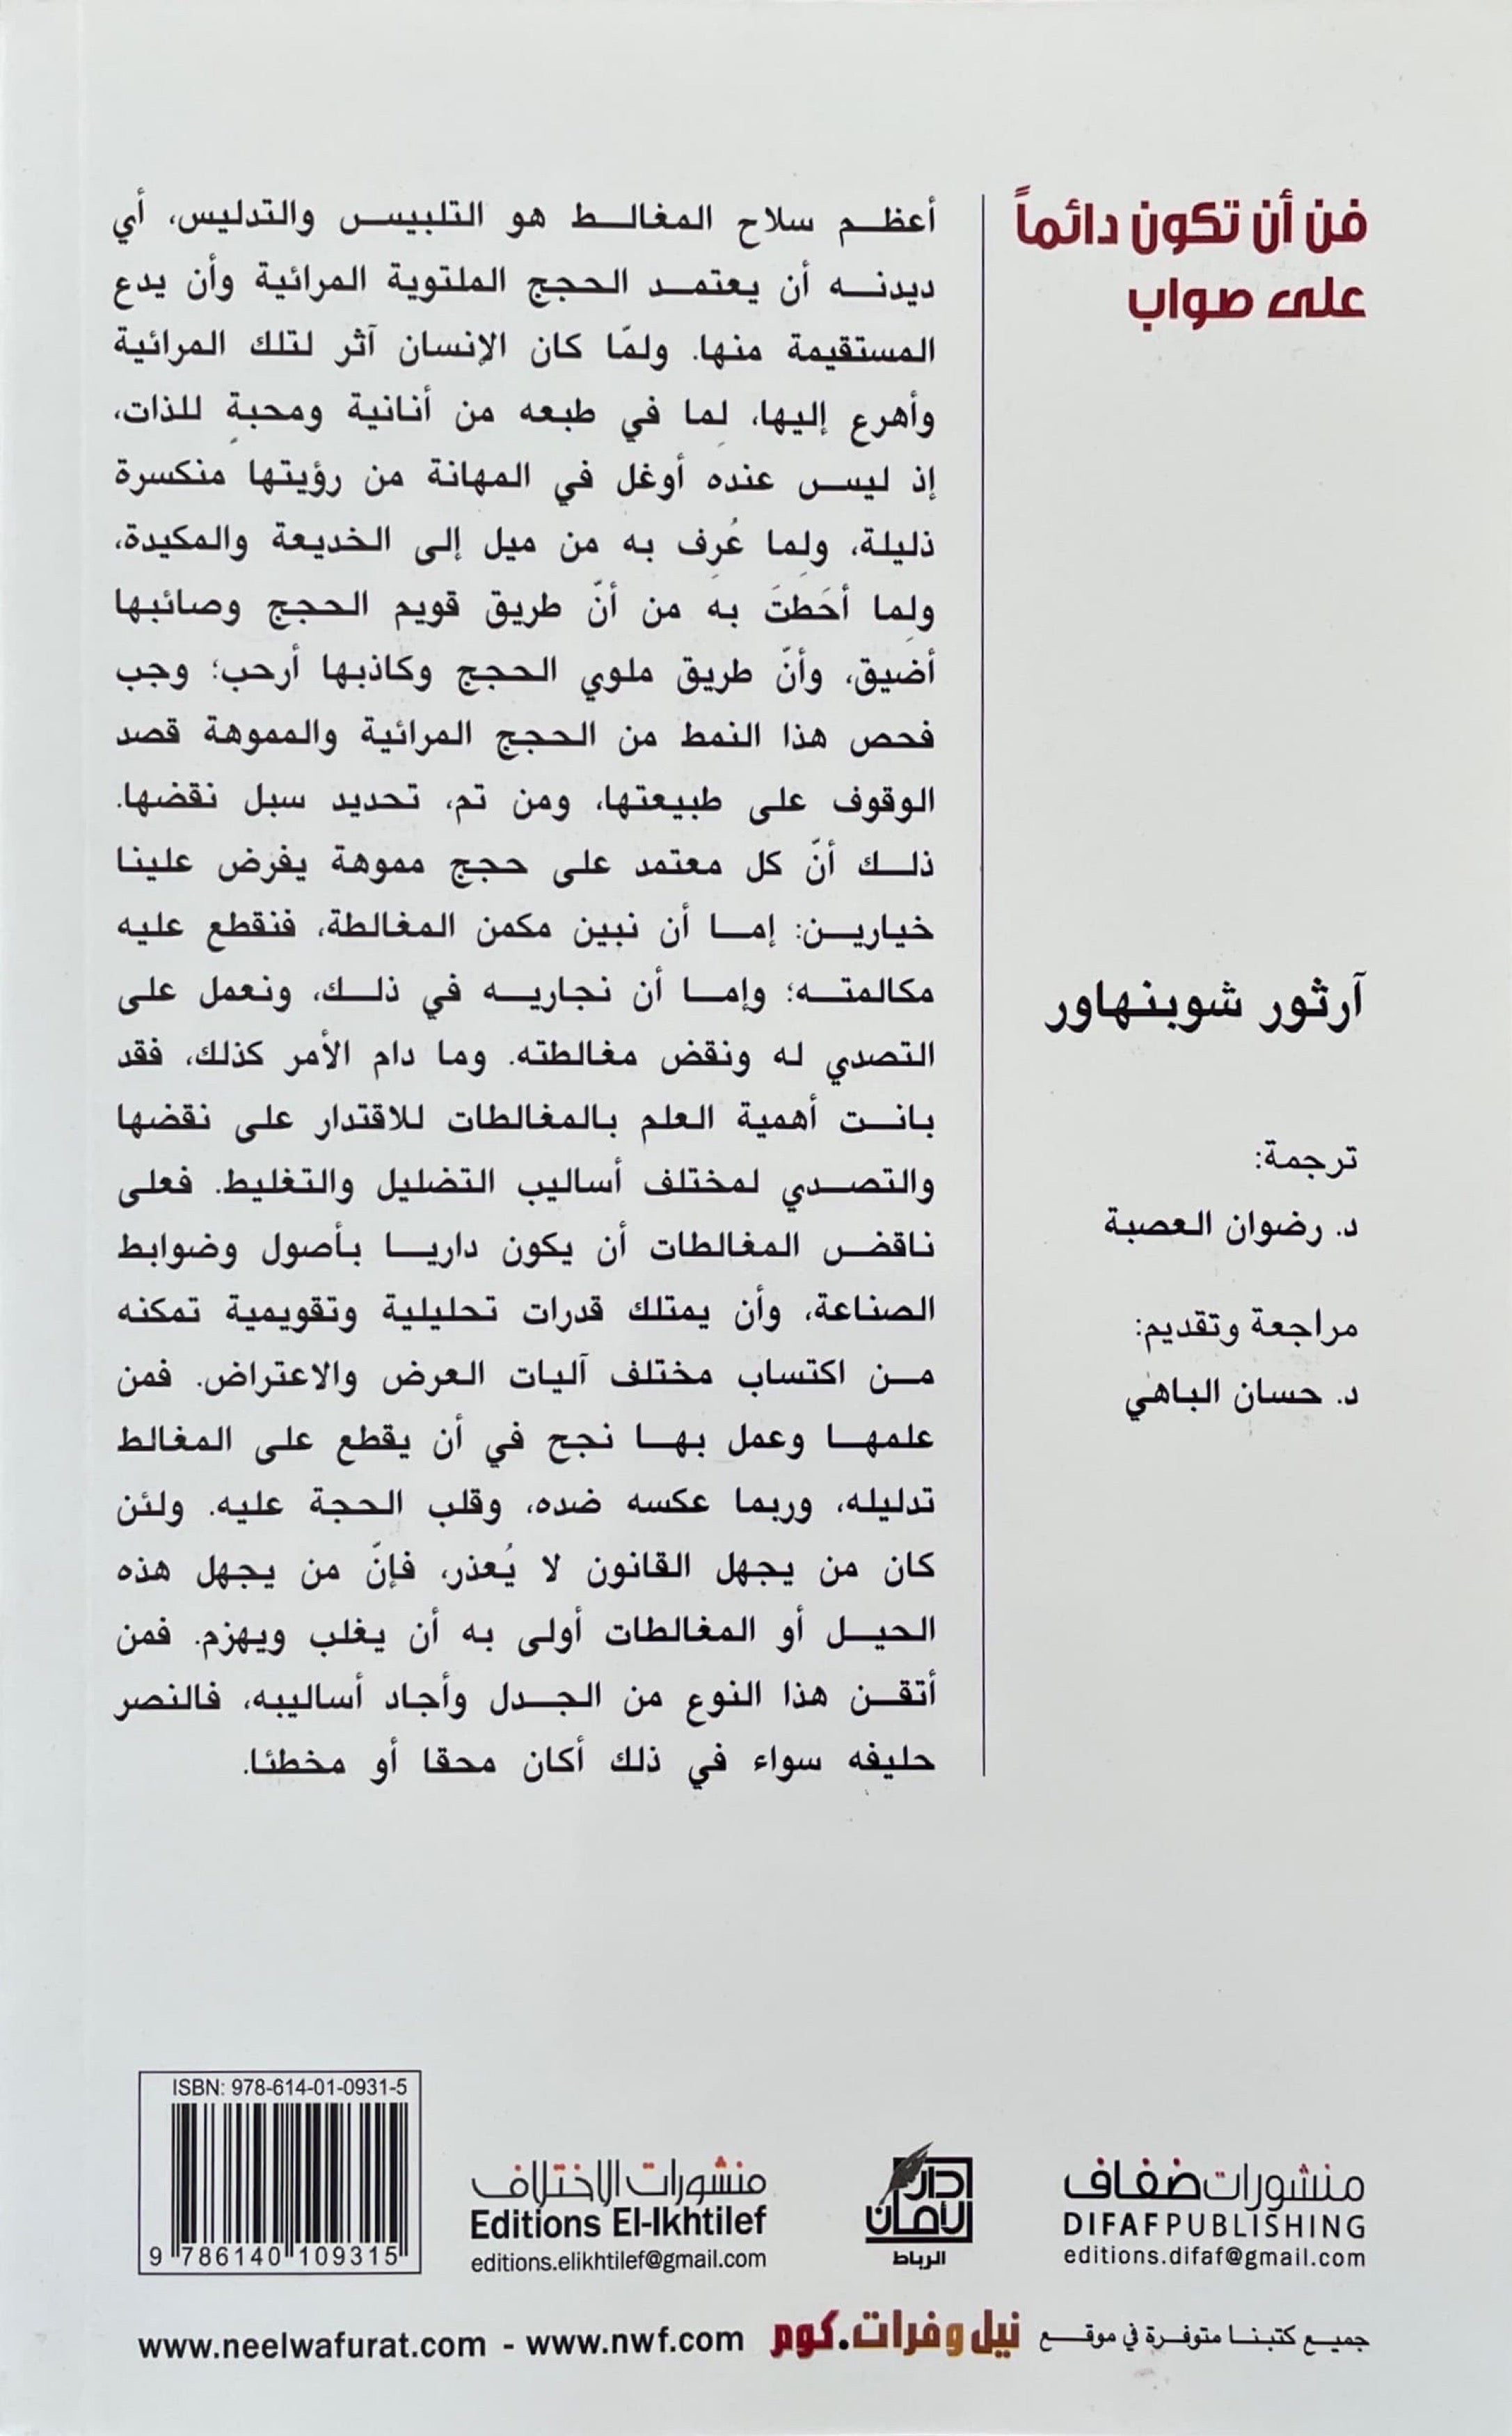 فن أن تكون دائماً
على صواب
آرثور شوبنهاور
ترجمة:
د. رضوان العصبة
مراجعة وتقديم:
د. حسان الباهي
أعظم سلاح المغالط هو التلبيس والتدليس، أي
ديدنه أن يعتمد الحجج الملتوية المرائية وأن يدع
المستقيمة منها. ولمّا كان الإنسان آثر لتلك المرائية
وأهرع إليها، لما في طبعه من أنانية ومحبة للذات،
إذ ليس عنده أوغل في المهانة من رؤيتها منكسرة
ذليلة، ولما عُرِف به من ميل إلى الخديعة والمكيدة،
ولما أحَطتَ به من أنّ طريق قويم الحجج وصائبها
أضيق، وأنّ طريق ملوي الحجج وكاذبها أرحب؛ وجب
فحص هذا النمط من الحجج المرائية والمموهة قصد
الوقوف على طبيعتها، ومن تم، تحديد سبل نقضها.
ذلك أنّ كل معتمد على حجج مموهة يفرض علينا
خيارين: إما أن نبين مكمن المغالطة، فنقطع عليه
مكالمته؛ وإما أن نجاريه في ذلك، ونعمل على
التصدي له ونقض مغالطته. وما دام الأمر كذلك، فقد
بانت أهمية العلم بالمغالطات للاقتدار على نقضها
والتصدي لمختلف أساليب التضليل والتغليط. فعلى
ناقض المغالطات أن يكون داريا بأصول وضوابط
الصناعة، وأن يمتلك قدرات تحليلية وتقويمية تمكنه
من اكتساب مختلف آليات العرض والاعتراض. فمن
علمها وعمل بها نجح في أن يقطع على المغالط
تدليله، وربما عكسه ضده، وقلب الحجة عليه. ولئن
كان من يجهل القانون لا يُعذر، فإنّ من يجهل هذه
الحيل أو المغالطات أولى به أن يغلب ويهزم. فمن
أتقن هذا النوع من الجدل وأجاد أساليبه، فالنصر
حليفه سواء في ذلك أكان محقا أو مخطئا.
منشورات ضفاف
DIFAF PUBLISHING
editions.difaf@gmail.com
دار
الأمان
الرباط
منشورات الاختلاف
Editions El-Ikhtilef
editions.elikhtilef@gmail.com
ISBN: 978-614-01-0931-5
9 786140 109315
جميع كتبنا متوفرة في موقع نيل وفرات.كوم www.neelwafurat.com - www.nwf.com